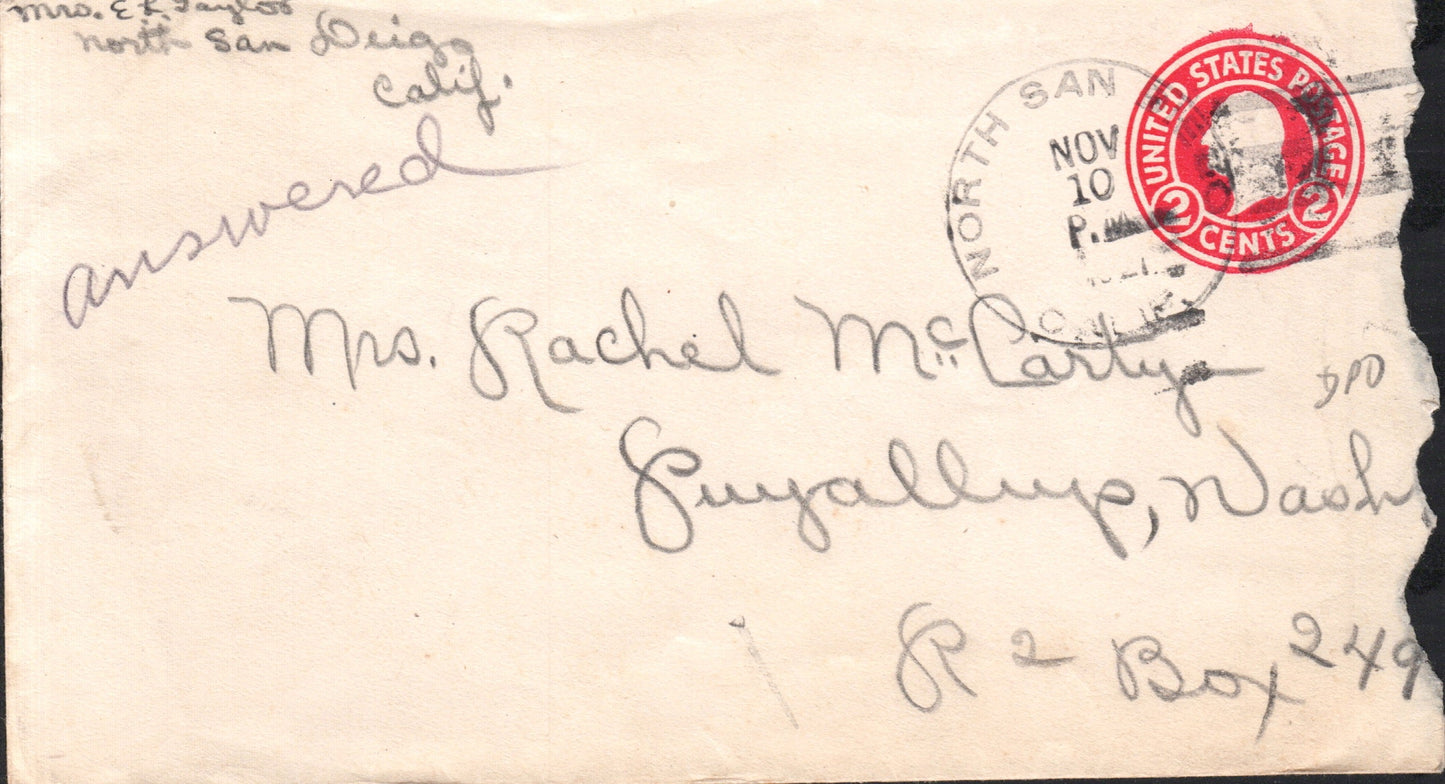 Mrs. E R Taylor
North San Deigo
Calif.
answered
NORTH SAN
NOV
10
P.M.
UNITED STATES POSTAGE
2 CENTS 2
Mrs. Rachel McCartys
Puyallup, Wash
R 2 Box 249